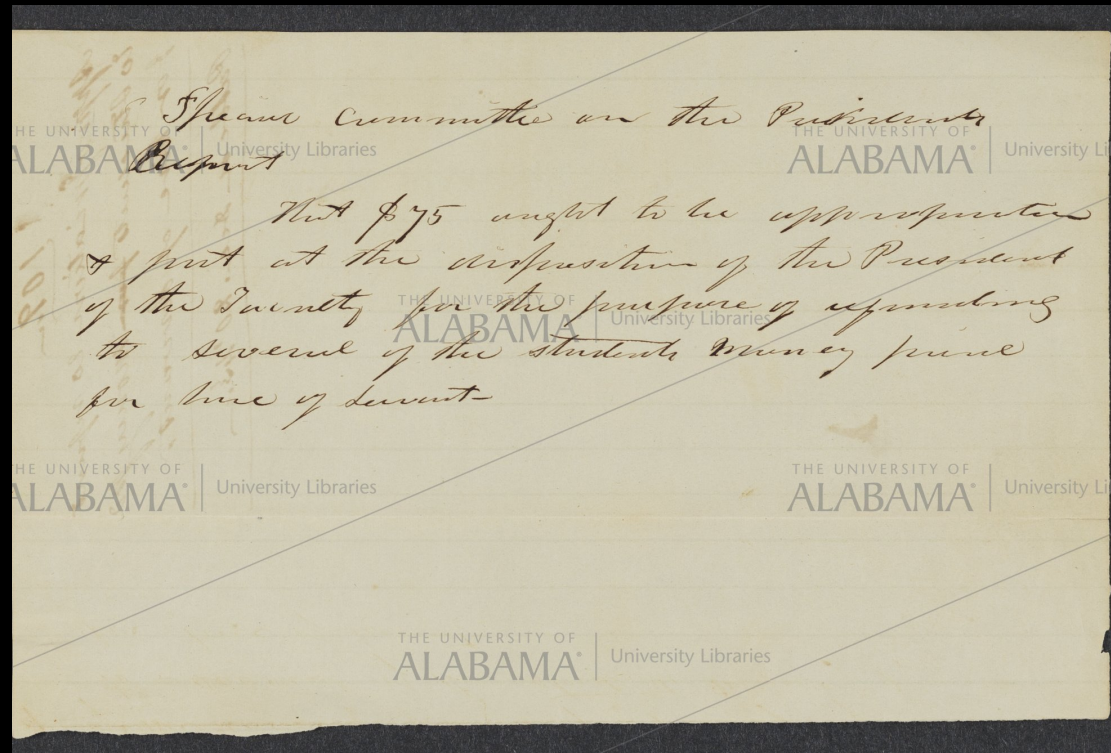 Special committee on the Presidents
Report
That $75 ought to be appropriated
& put at the disposition of the President
of the Faculty for the purpose of refunding
to several of the students money paid
for hire of servant
THE UNIVERSITY OF
ALABAMA
University Libraries